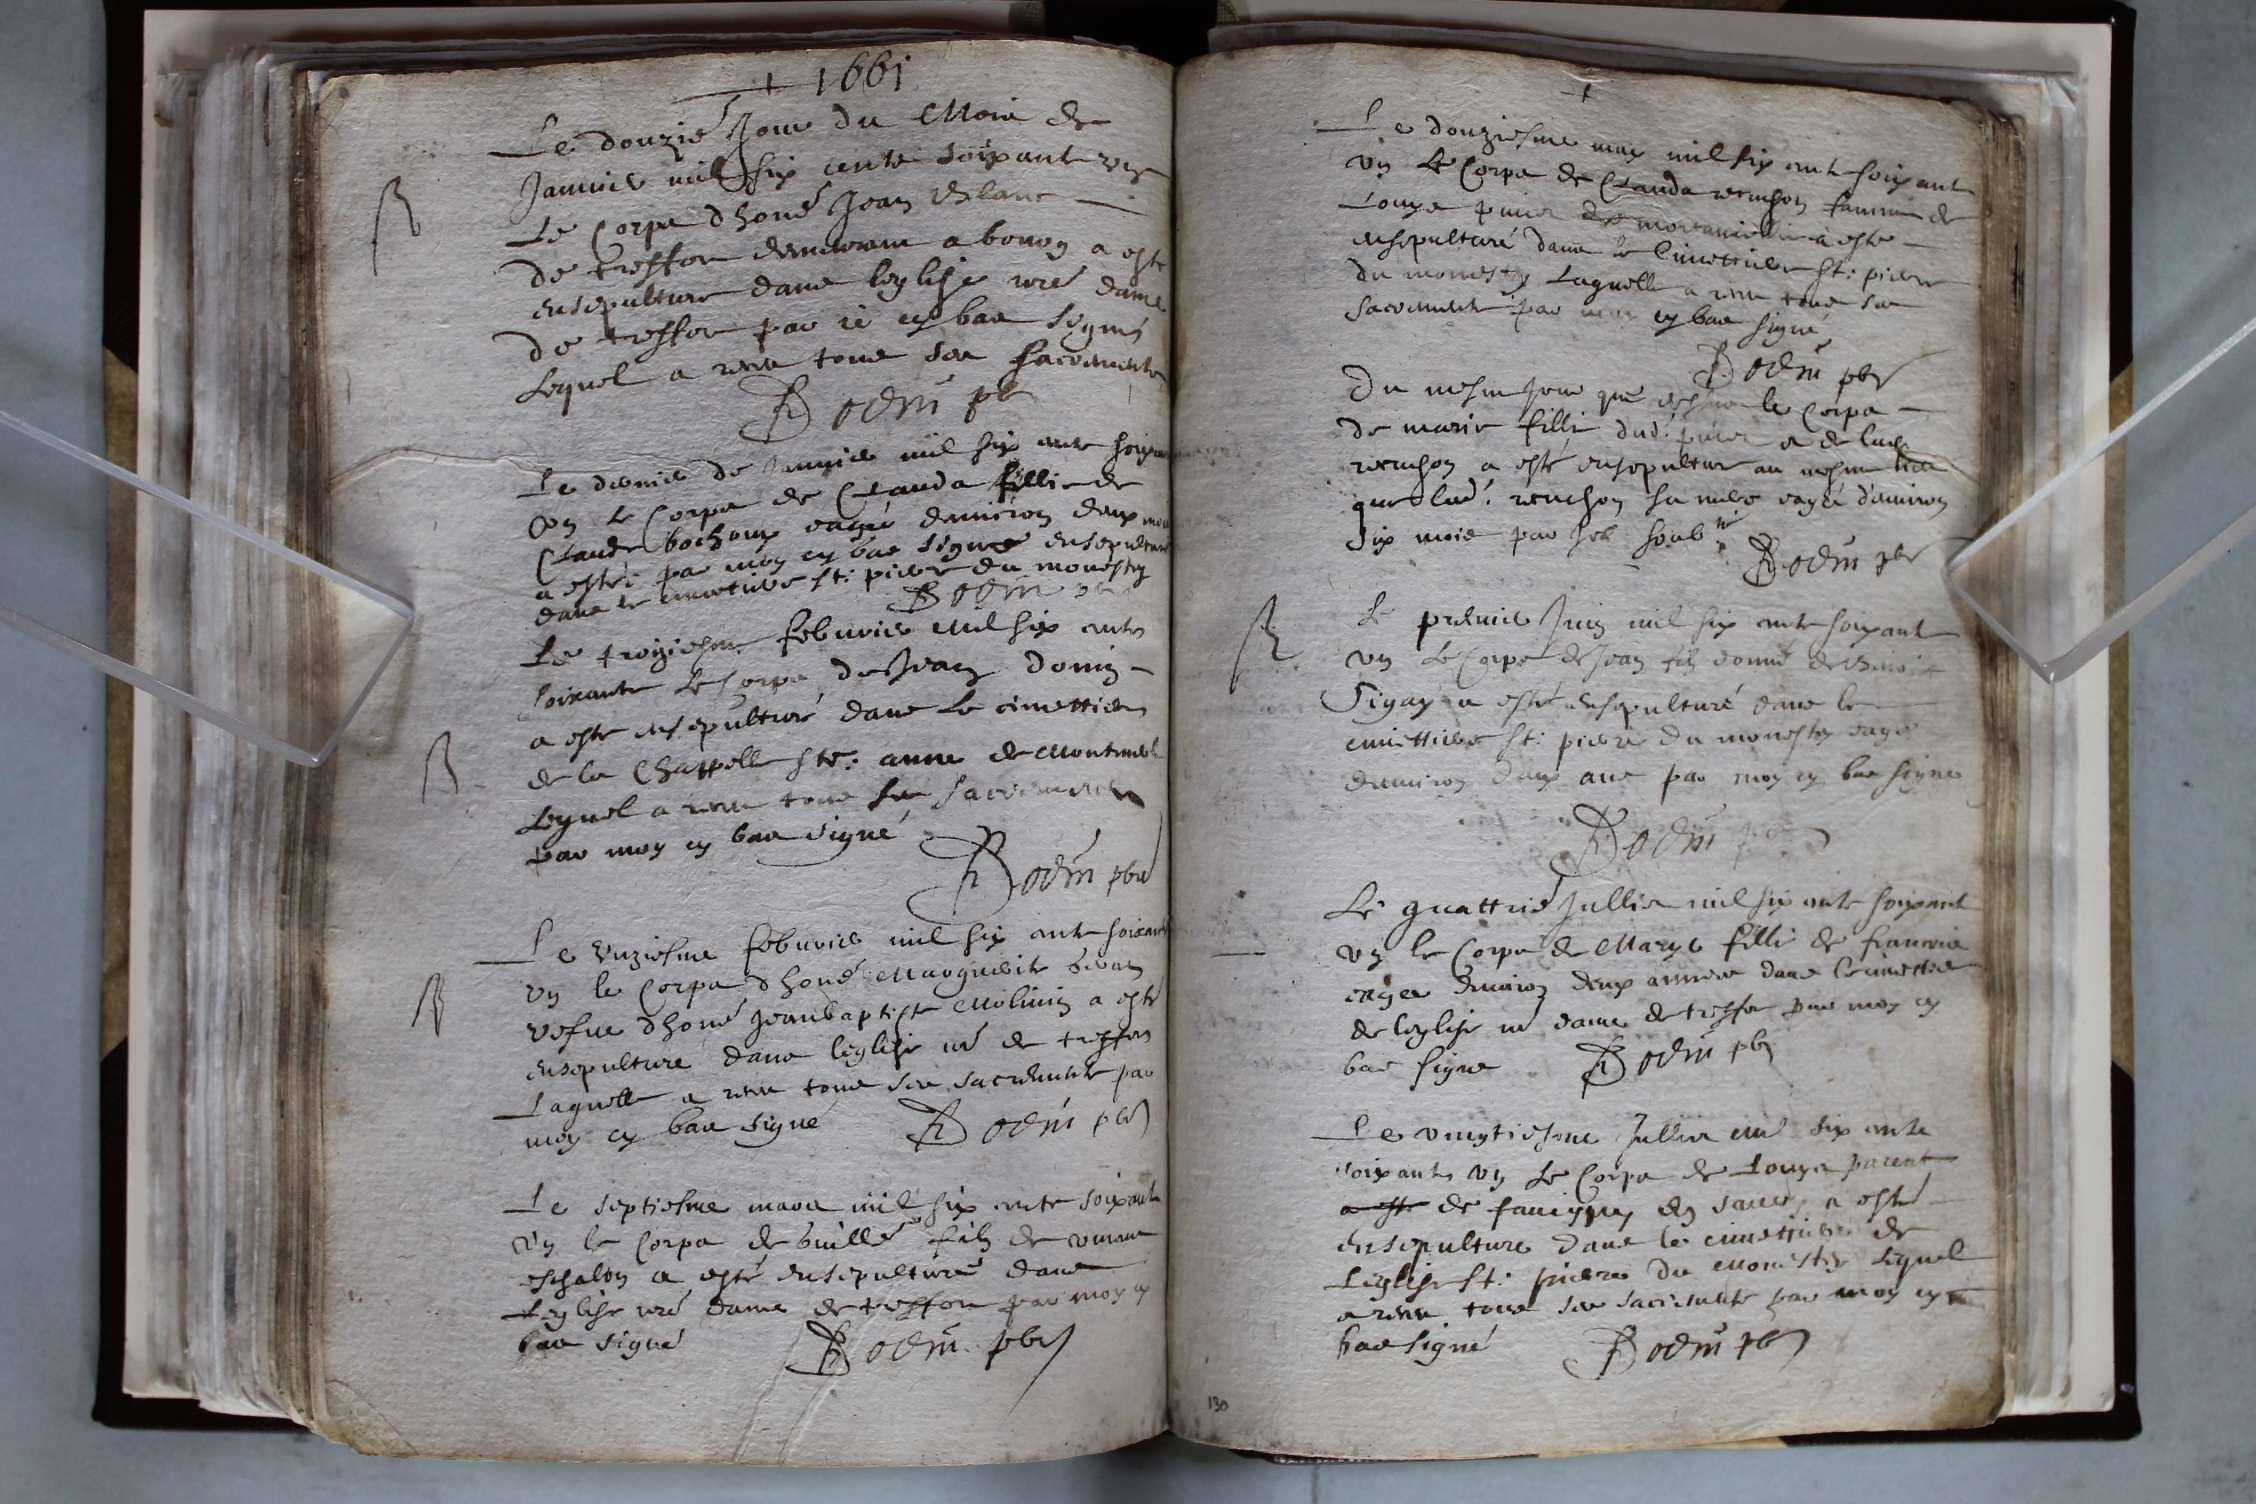 1661
Le douzié Jour du Mois de
Janvier mil six cents soixant vng
Le Corps dhoné Jean Blanc
de tresfor demeurant a bourg a esté
ensepulture dans leglise nré dame
de tresfor par ie cy bas signé
Lequel a receu tous ses sacrements
Bodin pbr
Le dernier de Janvier mil six cents soixant
vn le Corps de Clauda fillie de
Claude bochoux eagée denviron deux mois
a esté: par moy cy bas signé ensepulturé
dans le cimettiere st: pierre du monestay
Bodin pbr
Le troiziesme febvrier Mil six cents
soixante Le corps de Jean donin
a esté ensepulturé dans Le cimettiere
de la Chappelle ste: anne de Montmerle
Lequel a receu tous ses sacrements
par moy cy bas signé
Bodin pbr
Le vnziesme febvrier mil six cents soixant
vn le Corps dhoné Marguerite
vefue dhoné Jean baptiste Molinin a esté
ensepulturé dans leglise né de tresfor
Laquelle a receu tous ses sacrements par
moy cy bas signé Bodin pbr
Le septiesme mars mil six cents soixant
vn le Corps de fils de
eschalon a esté ensepulturé dans
Leglise nré dame de tresfor par moy cy
bas signé Bodin pbr
Le douziesme may mil six cents soixant
vn le Corps de Clauda renchon famme de
Louys a esté
ensepulturé dans le cimettiere st: pierre
du monestay Laquelle a receu tous ses
sacrements par moy cy bas signé
Bodin pbr
Du mesme Jour que dessus le Corps
de marie fillie dud: et de lad
renchon a esté ensepulturé au mesme lieu
que lad: renchon sa mere eagée d'environ
six mois par Je soub né
Bodin pbr
Le premier Juin mil six cents soixant
vn Le Corps de Jean fils donné de Benoist
Sigay a esté ensepulturé dans le
cimettiere st: pierre du monestay eagé
denviron deux ans par moy cy bas signé
Bodin pbr
Le quattrié Jullier mil six cents soixant
vn le Corps de Marye fillie de francois
eagee denviron deux annees dans le cimettiere
de leglise né dame de tresfor par moy cy
bas signe Bodin pbr
Le vingtiesme Jullier mil six cents
soixants vn Le Corps de Louys parent
a esté de faucigny en savoy a esté
ensepulture dans le cimettiere de
Leglise st: pierre du Monestay Lequel
a receu tous ses sacrements par moy cy
bas signé Bodin pbr
130